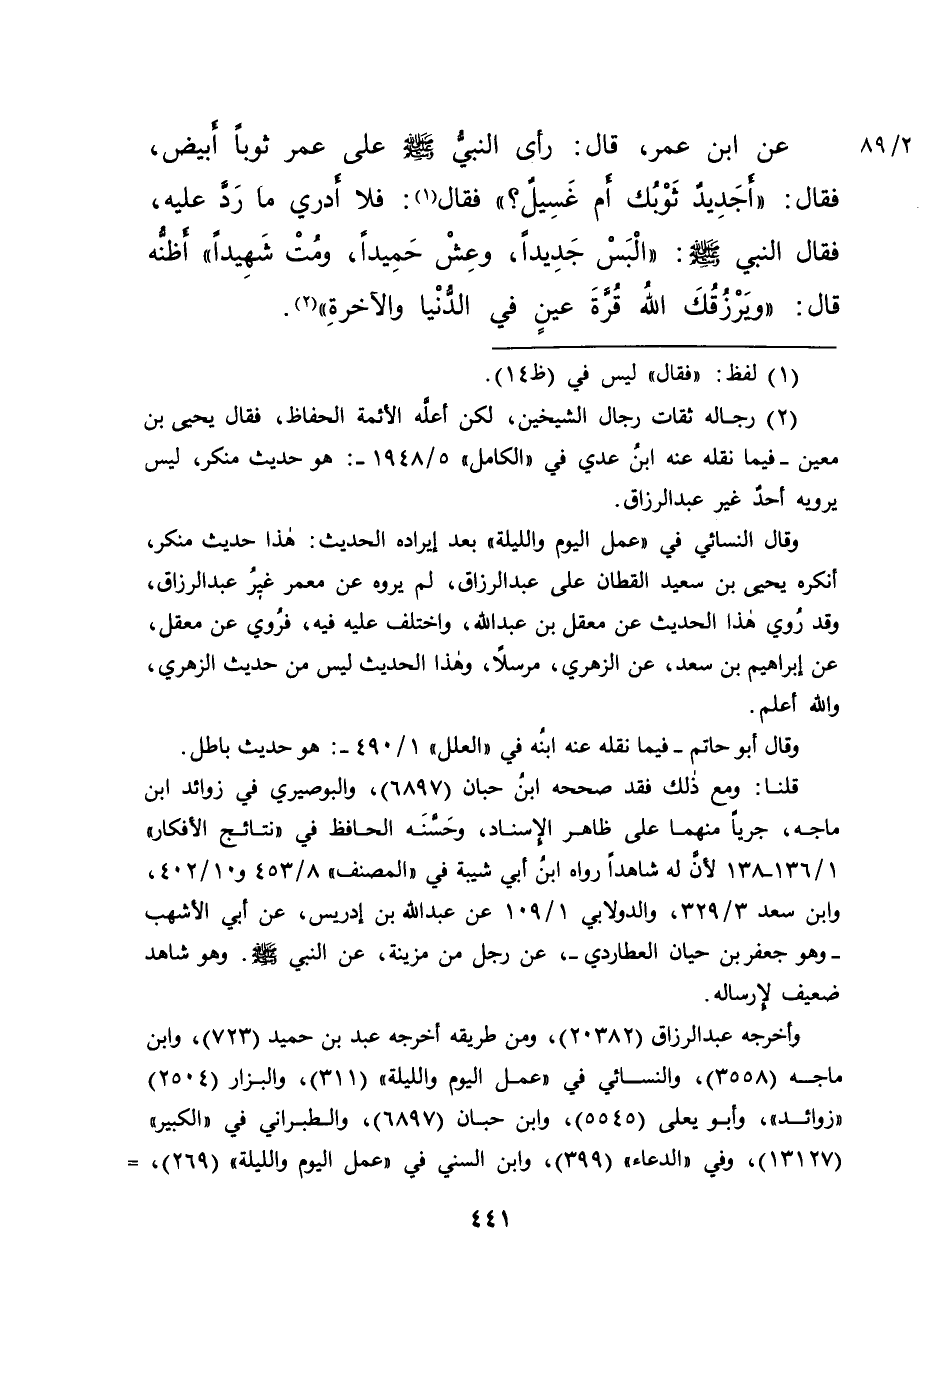 ٨٩/٢
عن ابن عمر، قال: رأى النبيُّ ﷺ على عمر ثوباً أَبيض،
فقال: «أَجَدِيدٌ ثَوْبُك أَم غَسِيلٌ؟» فقال(١): فلا أَدري ما رَدَّ عليه،
فقال النبي ﷺ: «الْبَسْ جَدِيداً، وعِشْ حَمِيداً، ومُتْ شَهِيداً» أَظنُّه
قال: «ويَرْزُقُكَ اللهُ قُرَّةَ عينٍ في الدُّنْيا والآخرةِ»(٢).
(١) لفظ: «فقال» ليس في (ظ١٤).
(٢) رجاله ثقات رجال الشيخين، لكن أعلَّه الأئمة الحفاظ، فقال يحيى بن
معين - فيما نقله عنه ابنُ عدي في «الكامل» ١٩٤٨/٥ -: هو حديث منكر، ليس
يرويه أحدٌ غير عبدالرزاق.
وقال النسائي في «عمل اليوم والليلة» بعد إيراده الحديث: هٰذا حديث منكر،
أنكره يحيى بن سعيد القطان على عبدالرزاق، لم يروه عن معمر غيرُ عبدالرزاق،
وقد رُوي هٰذا الحديث عن معقل بن عبدالله، واختلف عليه فيه، فرُوي عن معقل،
عن إبراهيم بن سعد، عن الزهري، مرسلًا، وهٰذا الحديث ليس من حديث الزهري،
والله أعلم.
وقال أبو حاتم - فيما نقله عنه ابنُه في «العلل» ٤٩٠/١ -: هو حديث باطل.
قلنا: ومع ذٰلك فقد صححه ابنُ حبان (٦٨٩٧)، والبوصيري في زوائد ابن
ماجه، جرياً منهما على ظاهر الإِسناد، وحَسَّنَه الحافظ في «نتائج الأفكار»
١٣٦/١-١٣٨ لأنَّ له شاهداً رواه ابنُ أبي شيبة في «المصنف» ٤٥٣/٨ و٤٠٢/١٠،
وابن سعد ٣٢٩/٣، والدولابي ١٠٩/١ عن عبدالله بن إدريس، عن أبي الأشهب
- وهو جعفر بن حيان العطاردي -، عن رجل من مزينة، عن النبي ﷺ. وهو شاهد
ضعيف لإِرساله.
وأخرجه عبدالرزاق (٢٠٣٨٢)، ومن طريقه أخرجه عبد بن حميد (٧٢٣)، وابن
ماجه (٣٥٥٨)، والنسائي في «عمل اليوم والليلة» (٣١١)، والبزار (٢٥٠٤)
«زوائد»، وأبو يعلى (٥٥٤٥)، وابن حبان (٦٨٩٧)، والطبراني في «الكبير»
(١٣١٢٧)، وفي «الدعاء» (٣٩٩)، وابن السني في «عمل اليوم والليلة» (٢٦٩)، =
٤٤١